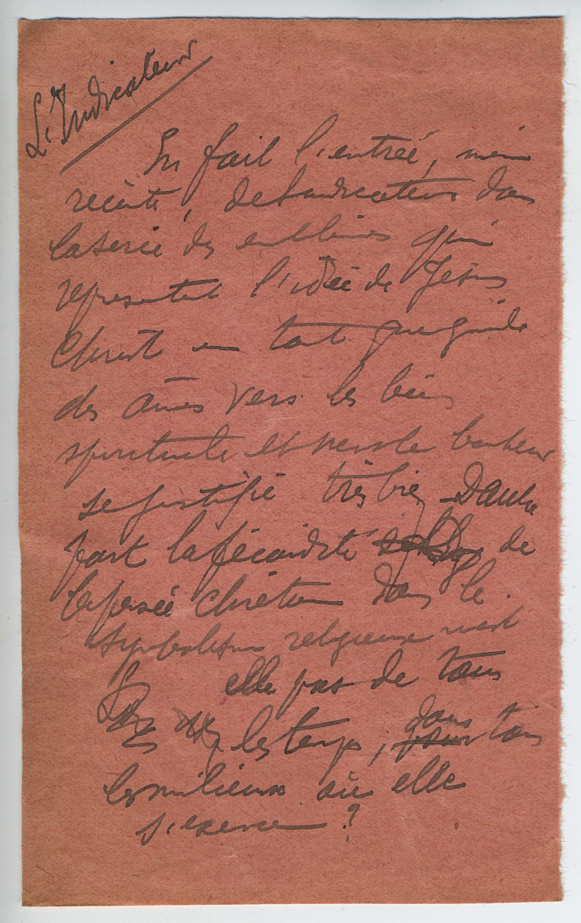 L'Indicateur
En fait l'entrée, même
récente, de l'indicateur dans
la série des emblèmes qui
représentent l'idée de Jésus
Christ en tant que guide
des âmes vers les biens
spirituels et vers le bonheur
se justifie très bien D'autre
part la fécondité de
la pensée chrétienne dans le
symbolisme religieux n'est
elle pas de tous
les temps, dans tous
les milieux où elle
s'exerce ?